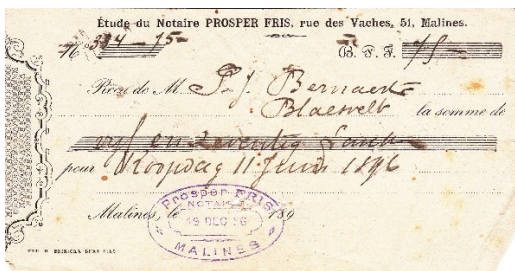 Étude du Notaire PROSPER FRIS, rue des Vaches, 51, Malines.
75 —
Reçu de M. P. J. Bernaerts
Blaesvelt la somme de
vyf en zeventig
pour Koopdag 11 Juni 1896
Malines, le 189
Prosper FRIS
NOTAIRE
19 DEC 96
MALINES